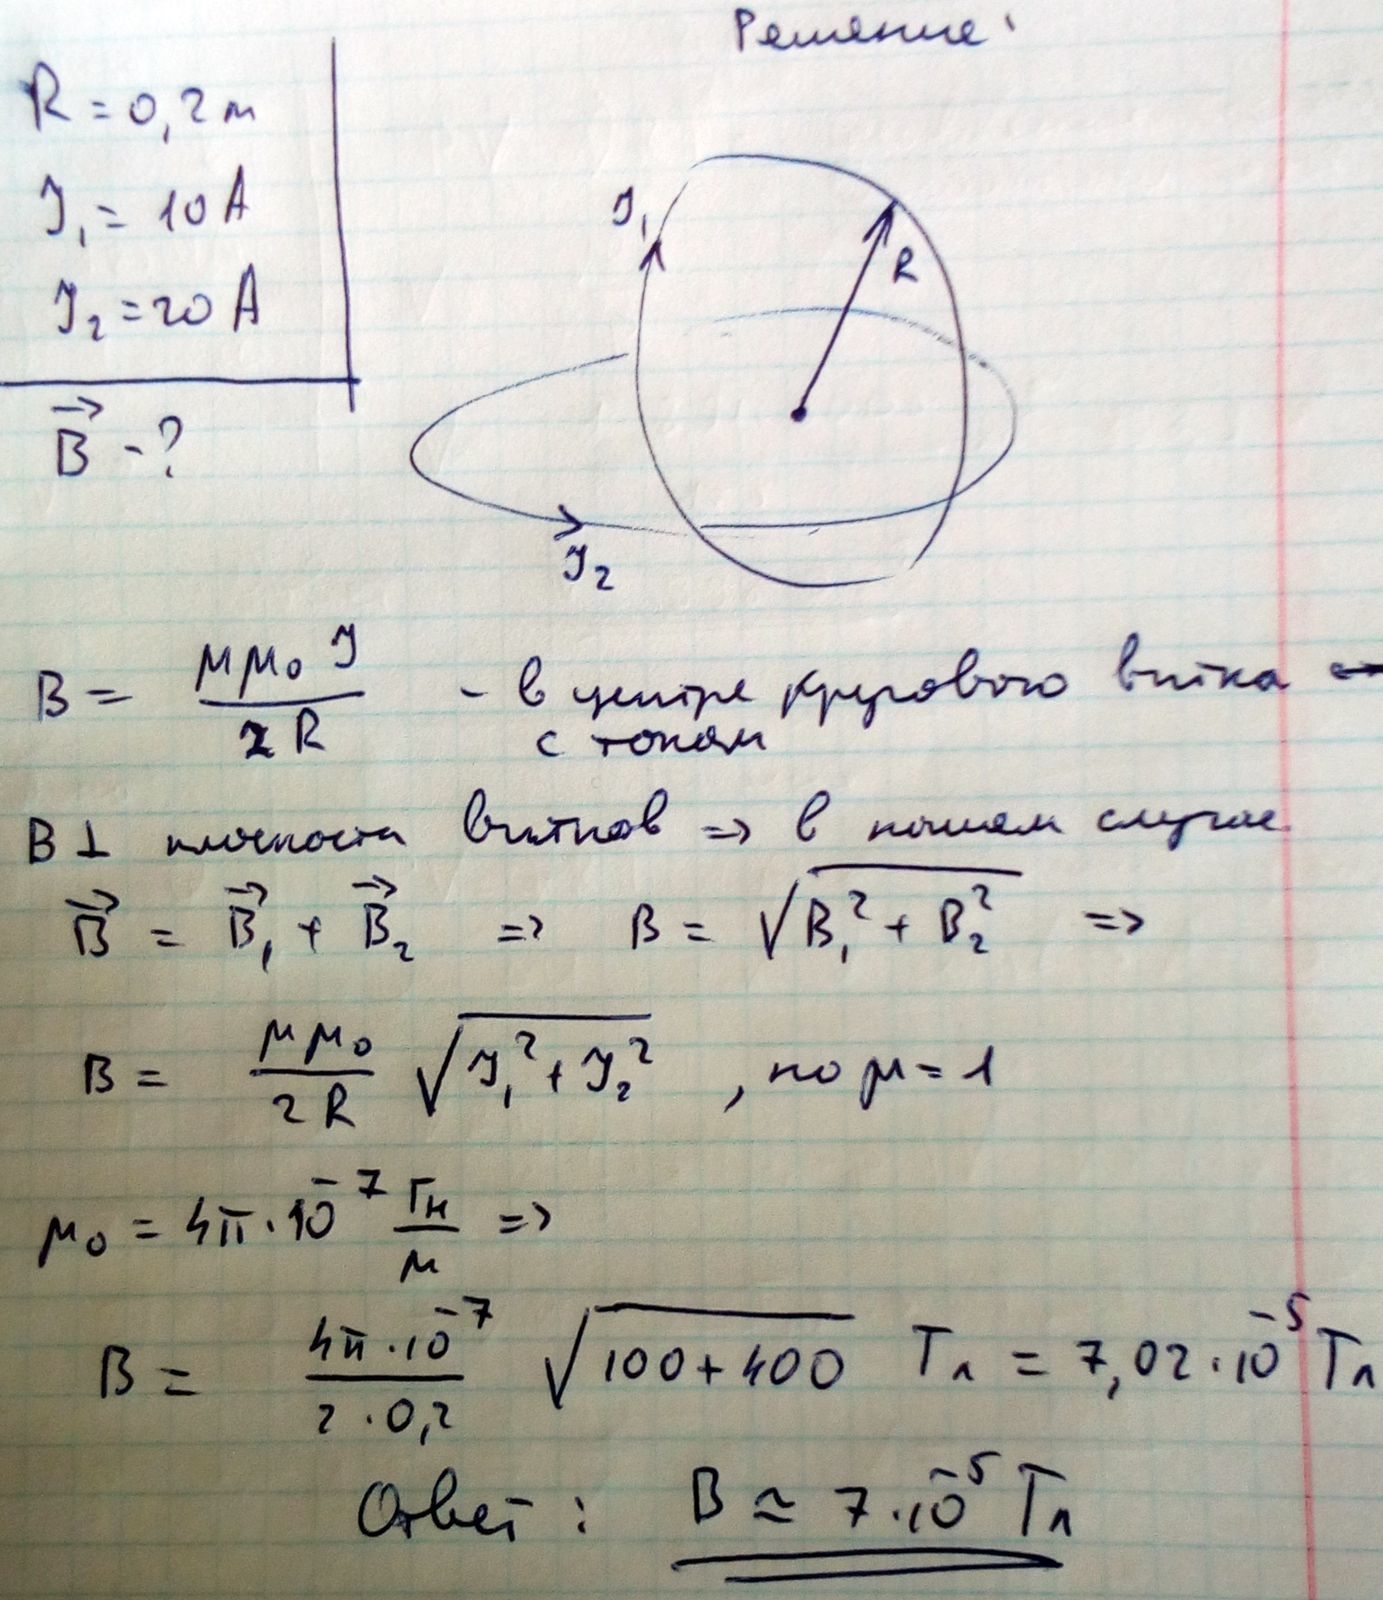 Решение:
R = 0,2 м
J₁ = 10 A
J₂ = 20 A
B⃗ - ?
J₁
R
J₂
B = μμ₀J / 2R - в центре кругового витка
с током
B ⊥ плоскости витков => в нашем случае
B⃗ = B⃗₁ + B⃗₂ => B = √(B₁² + B₂²) =>
B = μμ₀ / 2R √(J₁² + J₂²) , но μ = 1
μ₀ = 4π·10⁻⁷ Гн/м =>
B = 4π·10⁻⁷ / 2·0,2 √(100+400) Тл = 7,02·10⁻⁵ Тл
Ответ: B ≃ 7·10⁻⁵ Тл